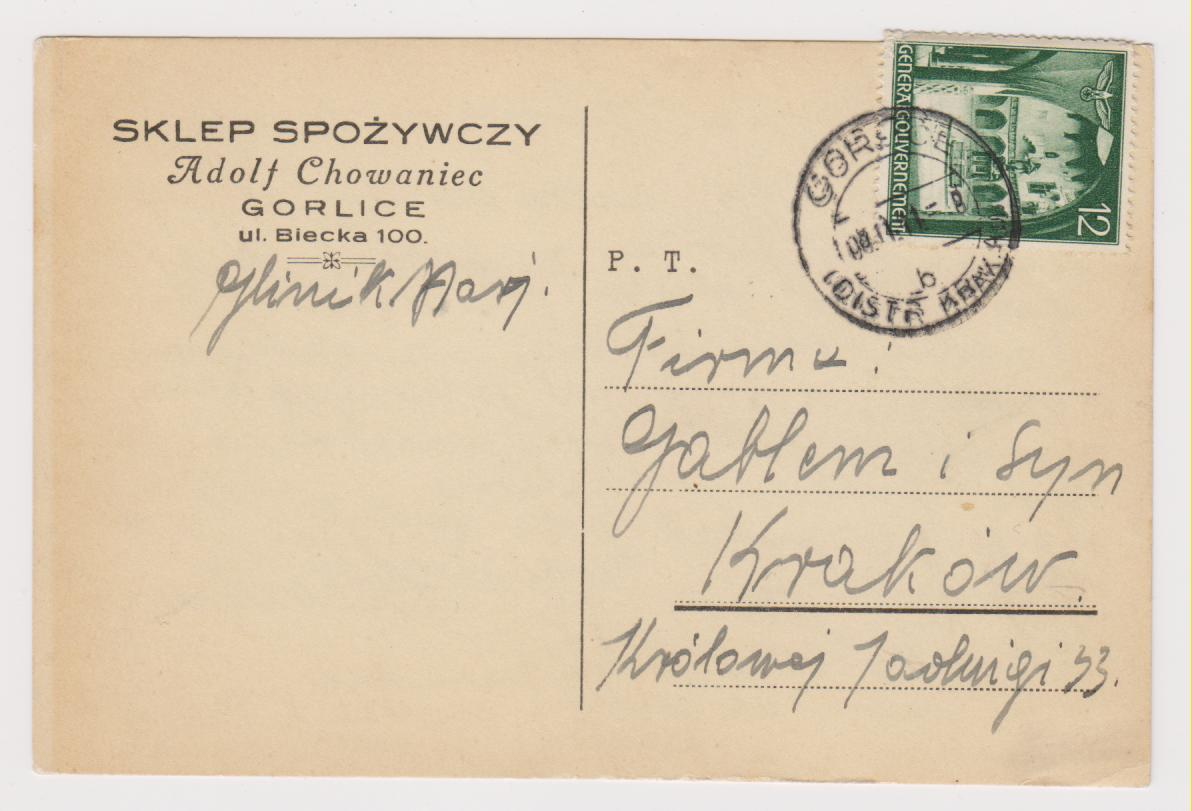 SKLEP SPOŻYWCZY
Adolf Chowaniec
GORLICE
ul. Biecka 100.
Glinik Marj.
GENERALGOUVERNEMENT
12
(DISTR KRAKAU)
b
P. T.
Firma:
Gablenz i Syn
Kraków.
Królowej Jadwigi 33.